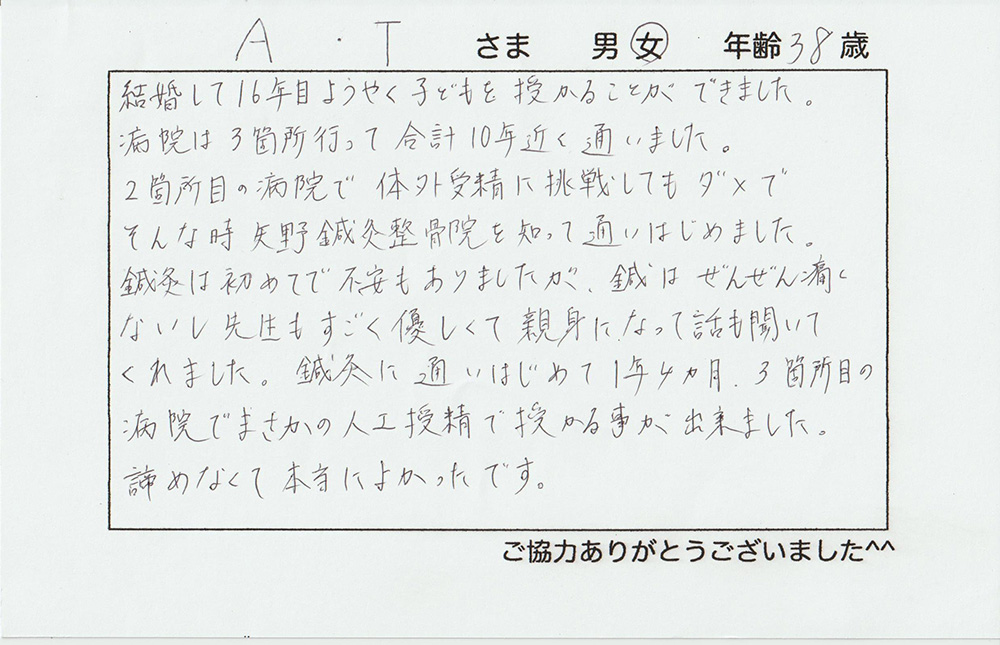 A・T さま 男 女 年齢 38 歳
結婚して16年目ようやく子どもを授かることができました。
病院は3箇所行って合計10年近く通いました。
2箇所目の病院で体外受精に挑戦してもダメで
そんな時矢野鍼灸整骨院を知って通いはじめました。
鍼灸は初めてで不安もありましたが、鍼はぜんぜん痛く
ないし先生もすごく優しくて親身になって話も聞いて
くれました。鍼灸に通いはじめて1年4カ月、3箇所目の
病院でまさかの人工授精で授かる事が出来ました。
諦めなくて本当によかったです。
ご協力ありがとうございました^^